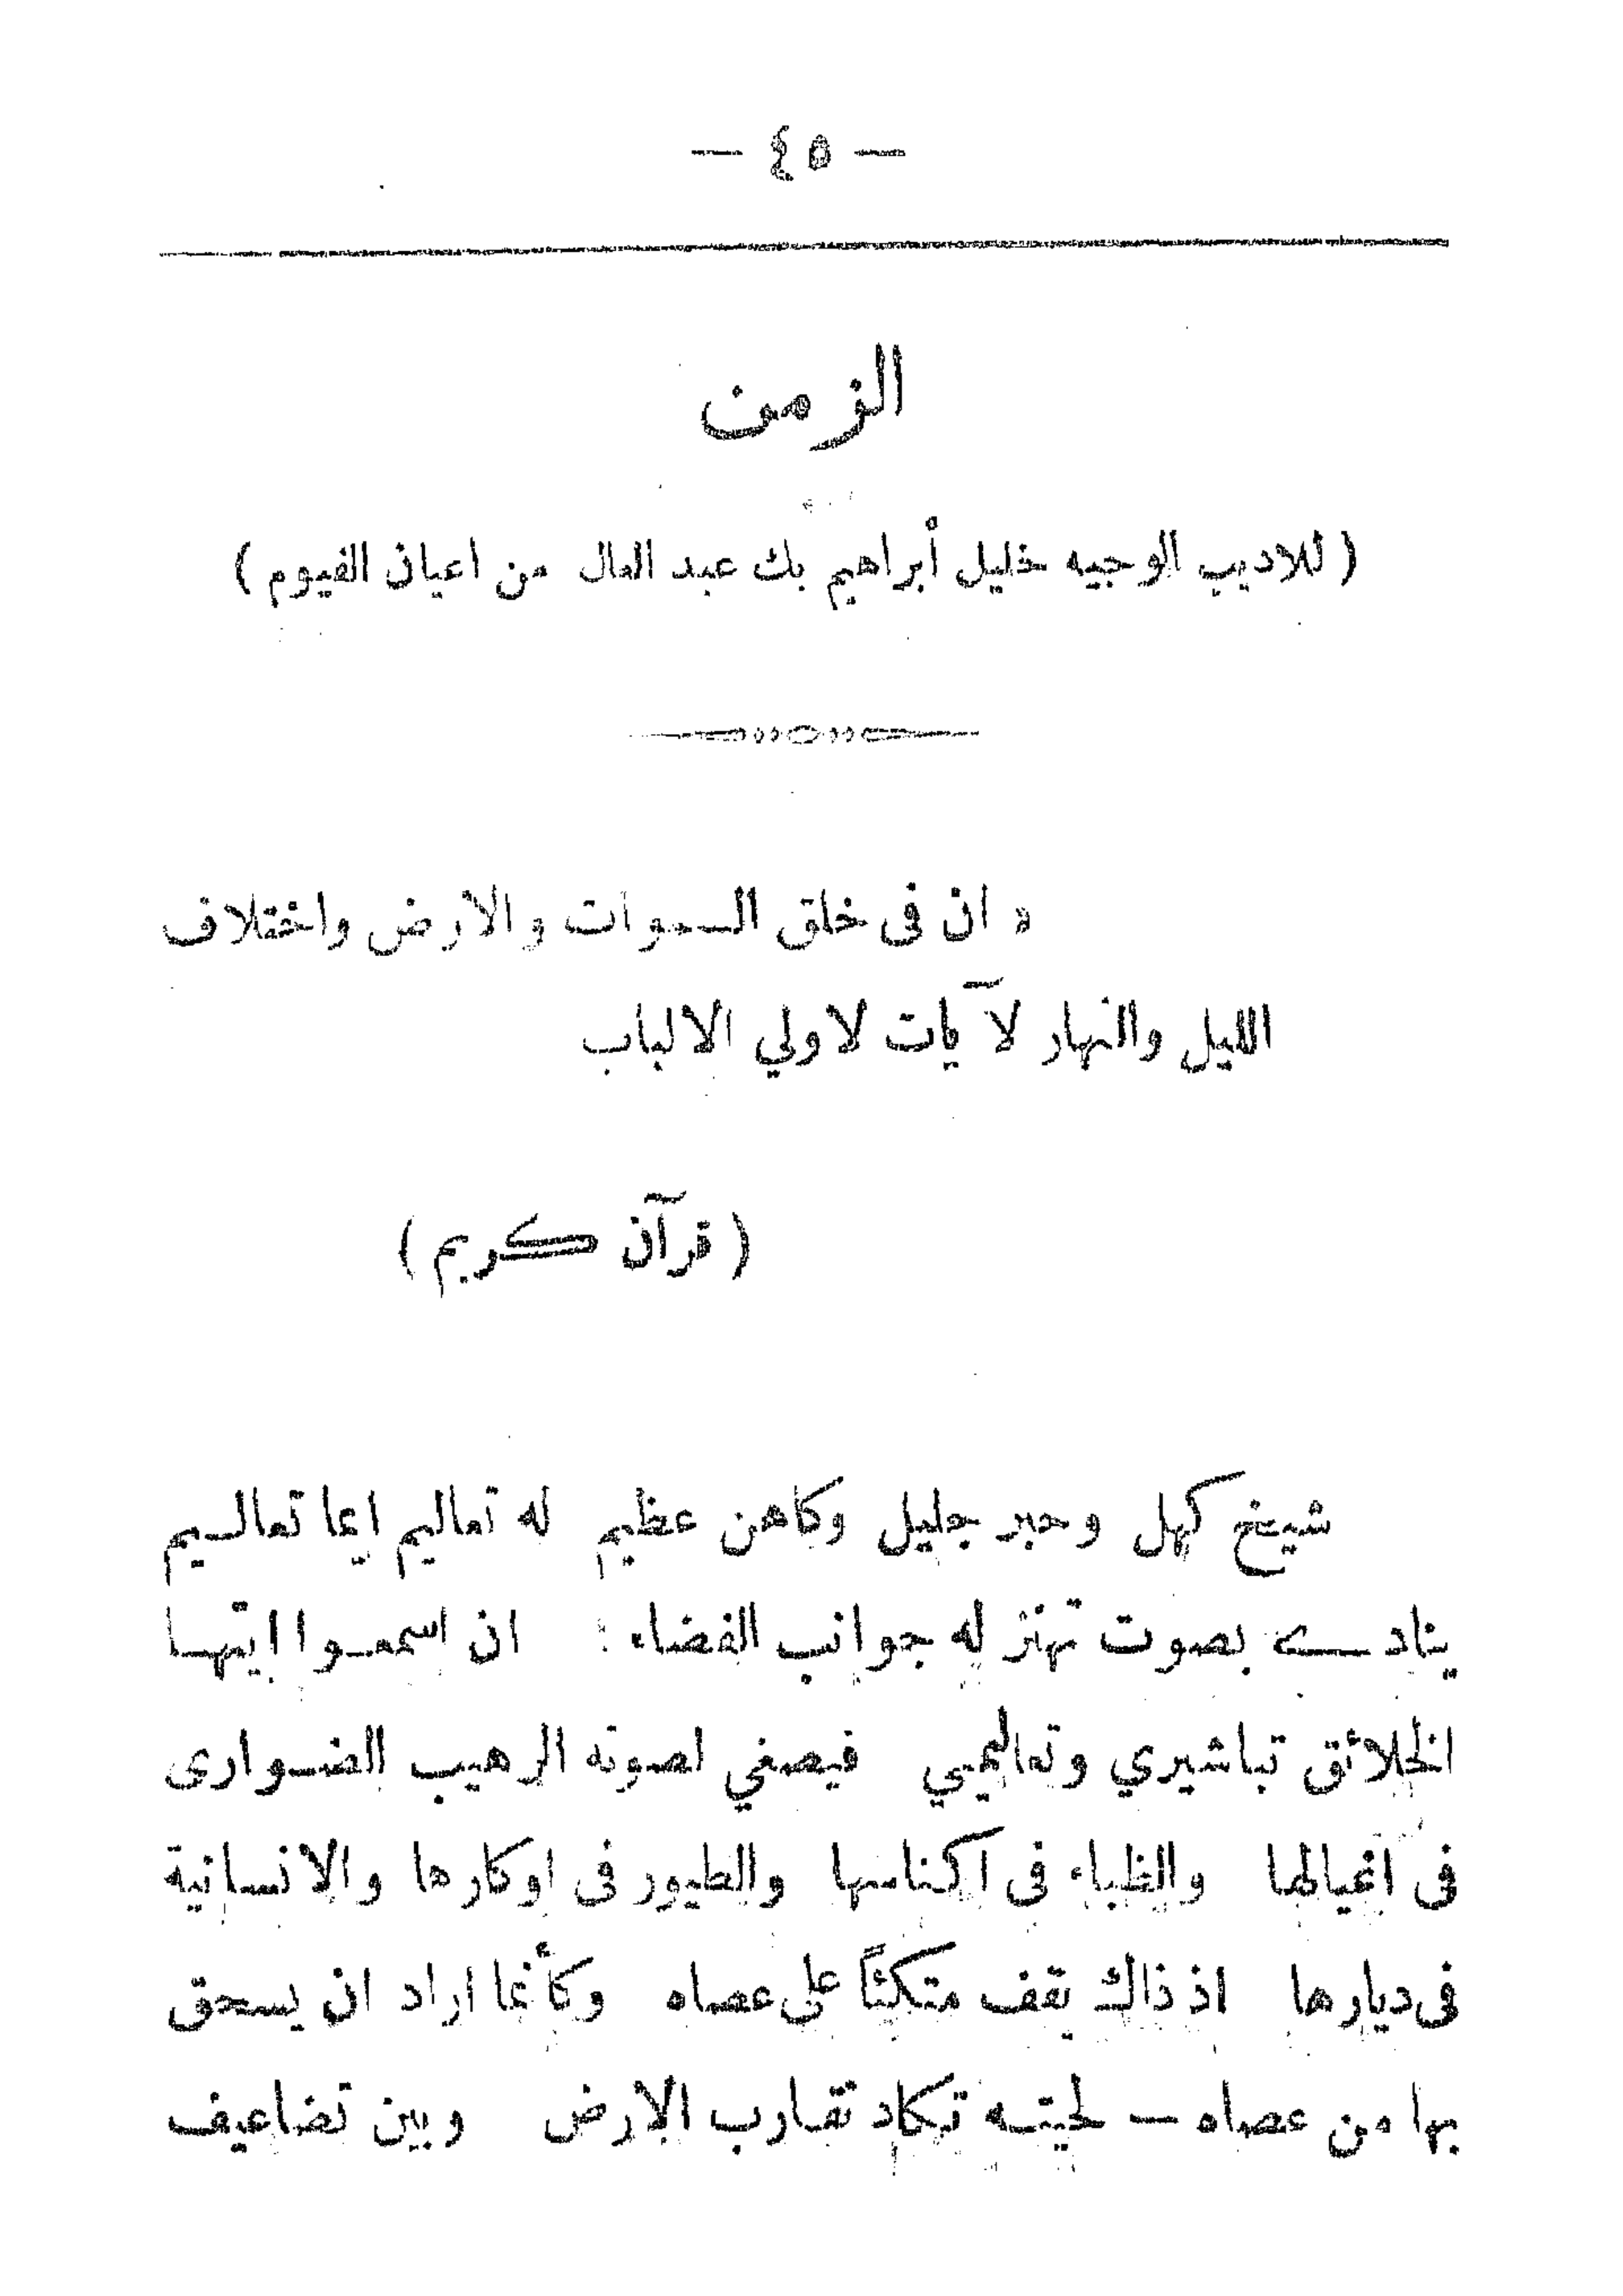 — ٤٥ —
الزمن
( للاديب الوجيه خليل أبراهيم بك عبد العال من اعيان الفيوم )
« ان فى خلق السموات والارض واختلاف
الليل والنهار لآيات لاولي الالباب
( قرآن كريم )
شيخ كهل وحبر جليل وكاهن عظيم له تعاليم ايما تعاليم
ينادي بصوت تهتز له جوانب الفضاء : ان اسمعوا ايتها
الخلائق تباشيري وتعاليمي فيصغي لصوته الرهيب الضوارى
فى اغيالها والظباء فى اكناسها والطيور فى اوكارها والانسانية
فى ديارها اذ ذاك يقف متكئاً على عصاه وكأنما اراد ان يسحق
بها من عصاه — لحيته تكاد تقارب الارض وبين تضاعيف